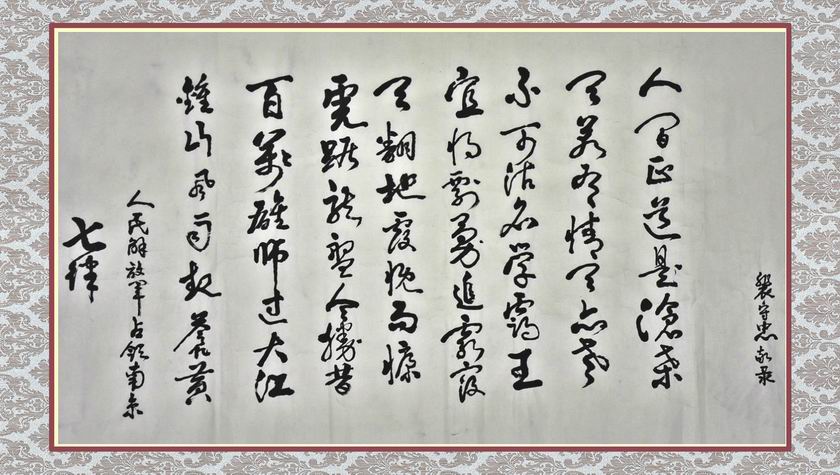 七律
人民解放军占领南京
鍾山风雨起蒼黄
百萬雄师过大江
虎踞龙盘今勝昔
天翻地覆慨而慷
宜将剩勇追窮寇
不可沽名学霸王
天若有情天亦老
人间正道是滄桑
裴守忠敬录